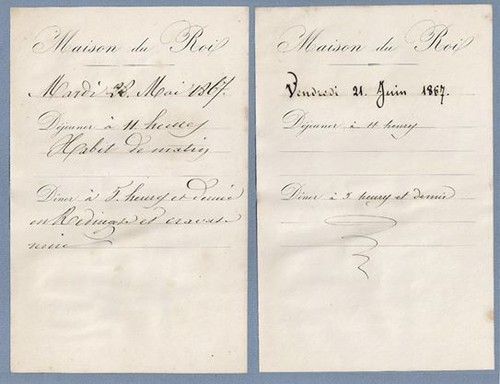 Maison du Roi
Mardi 22. Mai 1867.
Déjeuner à 11 heures
Habit de matin
Dîner à 7. heures et demie
en Redingote et cravate
noire
Maison du Roi
Vendredi 21. Juin 1867.
Déjeuner à 11 heures
Dîner à 7. heures et demie